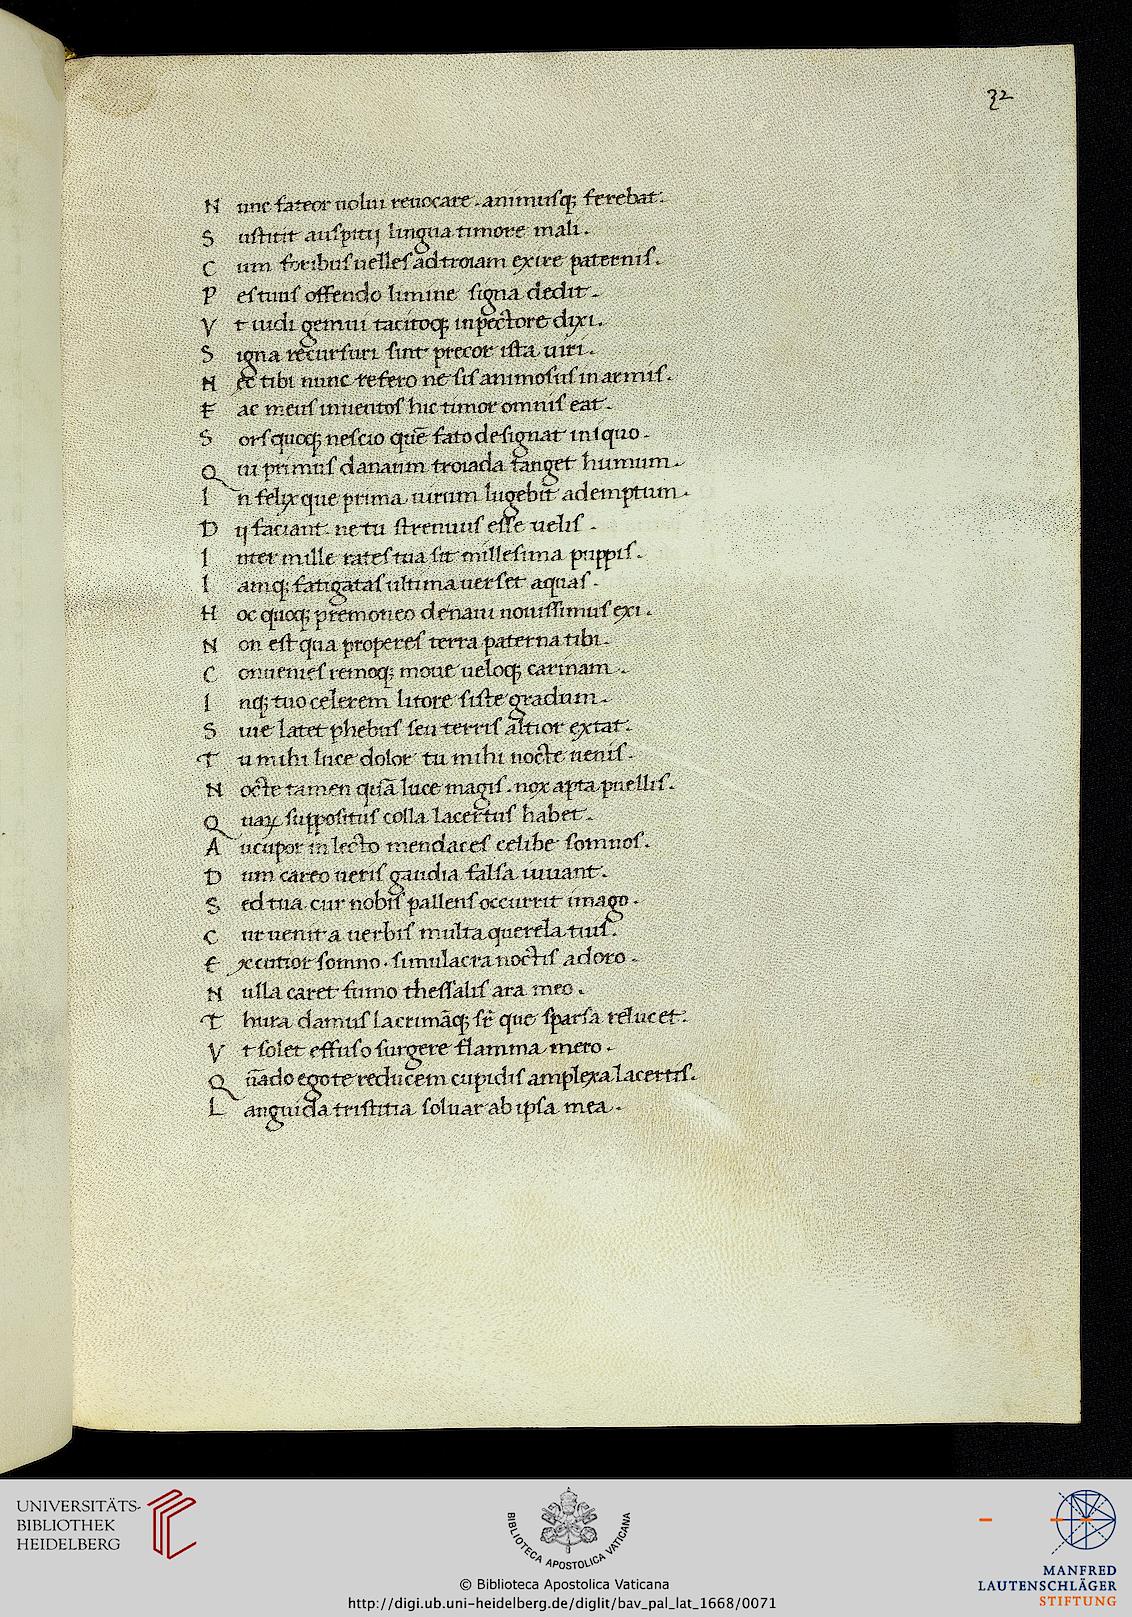 32
N unc fateor uolui reuocare . animusq; ferebat.
S ustitit auspitij lingua timore mali .
C um foribus uelles ad troiam exire paternis .
P es tuus offendo limine signa dedit .
V t uidi gemui tacitoq; in pectore dixi .
S igna recursuri sint precor ista uiri .
N ec tibi nunc refero ne sis animosus in armis .
F ac meus in uentos hic timor omnis eat .
S ors quoq; nescio quē fato designat iniquo .
Q ui primus danaum troiada tanget humum .
I n felix que prima uirum lugebit ademptum .
D ij faciant ne tu strenuus esse uelis .
I nter mille rates tua sit millesima puppis .
I amq; fatigatas ultima uerset aquas .
H oc quoq; premoneo de naui nouissimus exi .
N on est qua properes terra paterna tibi .
C onuenies remoq; moue ueloq; carinam .
I nq; tuo celerem litore siste gradum .
S iue latet phebus seu terris altior extat .
T u mihi luce dolor tu mihi nocte uenis .
N octe tamen quā luce magis . nox apta puellis .
Q uaꝝ suppositus colla lacertus habet .
A ucupor in lecto mendaces celibe somnos .
D um careo ueris gaudia falsa iuuant .
S ed tua cur nobis pallens occurrit imago .
C ur uenit a uerbis multa querela tuis .
E xcutior somno . simulacra noctis adoro .
N ulla caret fumo thessalis ara meo .
T hura damus lacrimāq; sr̄ que sparsa relucet .
V t solet effuso surgere flamma mero .
Q ūado ego te reducem cupidis amplexa lacertis .
L anguida tristitia soluar ab ipsa mea .
UNIVERSITÄTS-
BIBLIOTHEK
HEIDELBERG
BIBLIOTECA APOSTOLICA VATICANA
MANFRED
LAUTENSCHLÄGER
STIFTUNG
© Biblioteca Apostolica Vaticana
http://digi.ub.uni-heidelberg.de/diglit/bav_pal_lat_1668/0071